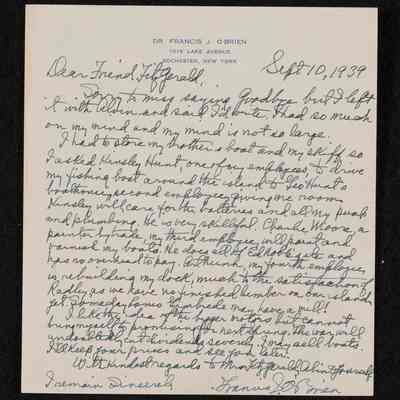 DR. FRANCIS J. O'BRIEN
LAKE AVENUE
ROCHESTER, NEW YORK
Sept 10, 1939
Dear Friend FitzGerald,
Sorry to miss saying Goodbye but I left
it with Alvin and said I'd write. I had so much
on my mind and my mind is not so large.
I had to store my brother's boat and my skiff so
I asked Kinsley Hunt, one of my employees, to drive
my fishing boat around the island to Geo Hunt's
boathouse, second employee, giving me room
Kinsley will care for the batteries and all my pump
and plumbing. He is very skillful. Charlie Moore, a
painter by trade, my third employee, will paint and
varnish my boats. He does all of Ed and
has no overhead to pay. my fourth employee,
is rebuilding my dock, much to the satisfaction of
Radley, as we have no finished lumber on our island,
yet. Someday James may have a mill!
I like the idea of the bigger motors but cannot
bring myself to promising for next spring. The war will
undoubtedly cut dividends severely. I may sell boats.
I'll keep your prices and see you later.
With kindest regards to Mrs FitzGerald, Alvin & yourself
I remain Sincerely
Francis J. O'Brien